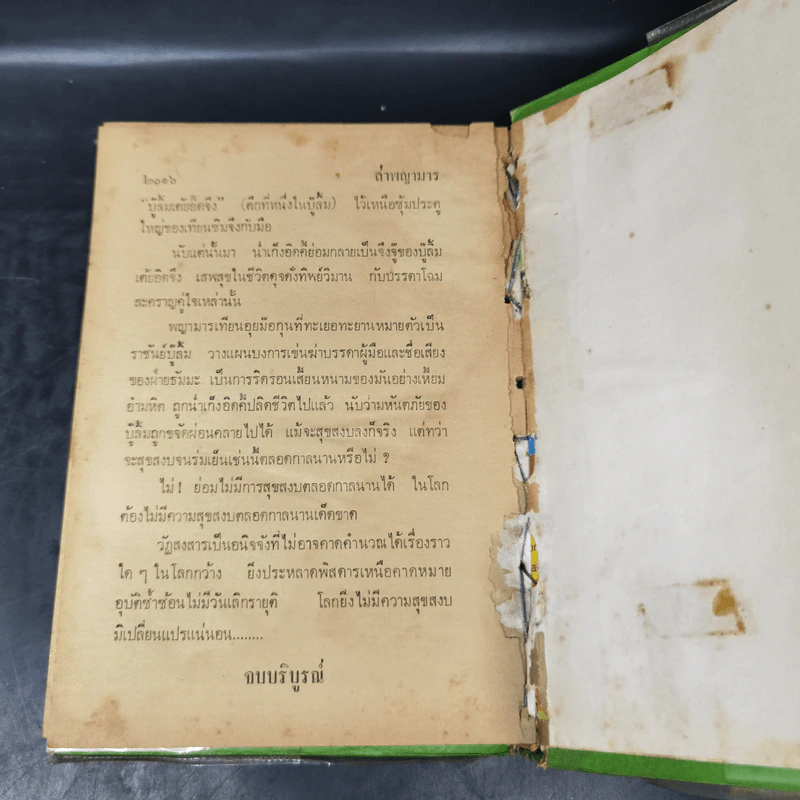 ๒๐๑๖ ล่าพญามาร
"บู๊ลิ้มเต้ยอิดจึง" (ตึกที่หนึ่งในบู๊ลิ้ม) ไว้เหนือซุ้มประตู
ใหญ่ของเทียนซิมจึงกับมือ
นับแต่นั้นมา น่ำเก็งอิดคี้ย่อมกลายเป็นจึงจู๊ของบู๊ลิ้ม
เต้ยอิดจึง เสพสุขในชีวิตดุจดั่งทิพย์วิมาน กับบรรดาโฉม
สะคราญคู่ใจเหล่านั้น
พญามารเทียนอุยม๊อกุนที่ทะเยอทะยานหมายตัวเป็น
ราชันย์บู๊ลิ้ม วางแผนบงการเข่นฆ่าบรรดาผู้มือและชื่อเสียง
ของฝ่ายธัมมะ เป็นการริดรอนเสี้ยนหนามของมันอย่างเหี้ยม
อำมหิต ถูกน่ำเก็งอิดคี้ปลิดชีวิตไปแล้ว นับว่ามหันตภัยของ
บู๊ลิ้มถูกขจัดผ่อนคลายไปได้ แม้จะสุขสงบลงก็จริง แต่ทว่า
จะสุขสงบจนร่มเย็นเช่นนี้ตลอดกาลนานหรือไม่ ?
ไม่ ! ย่อมไม่มีการสุขสงบตลอดกาลนานได้ ในโลก
ต้องไม่มีความสุขสงบตลอดกาลนานเด็ดขาด
วัฏสงสารเป็นอนิจจังที่ไม่อาจคาดคำนวณได้เรื่องราว
ใด ๆ ในโลกกว้าง ยิ่งประหลาดพิสดารเหนือคาดหมาย
อุบัติซ้ำซ้อนไม่มีวันเลิกรายุติ โลกยิ่งไม่มีความสุขสงบ
มิเปลี่ยนแปรแน่นอน........
จบบริบูรณ์